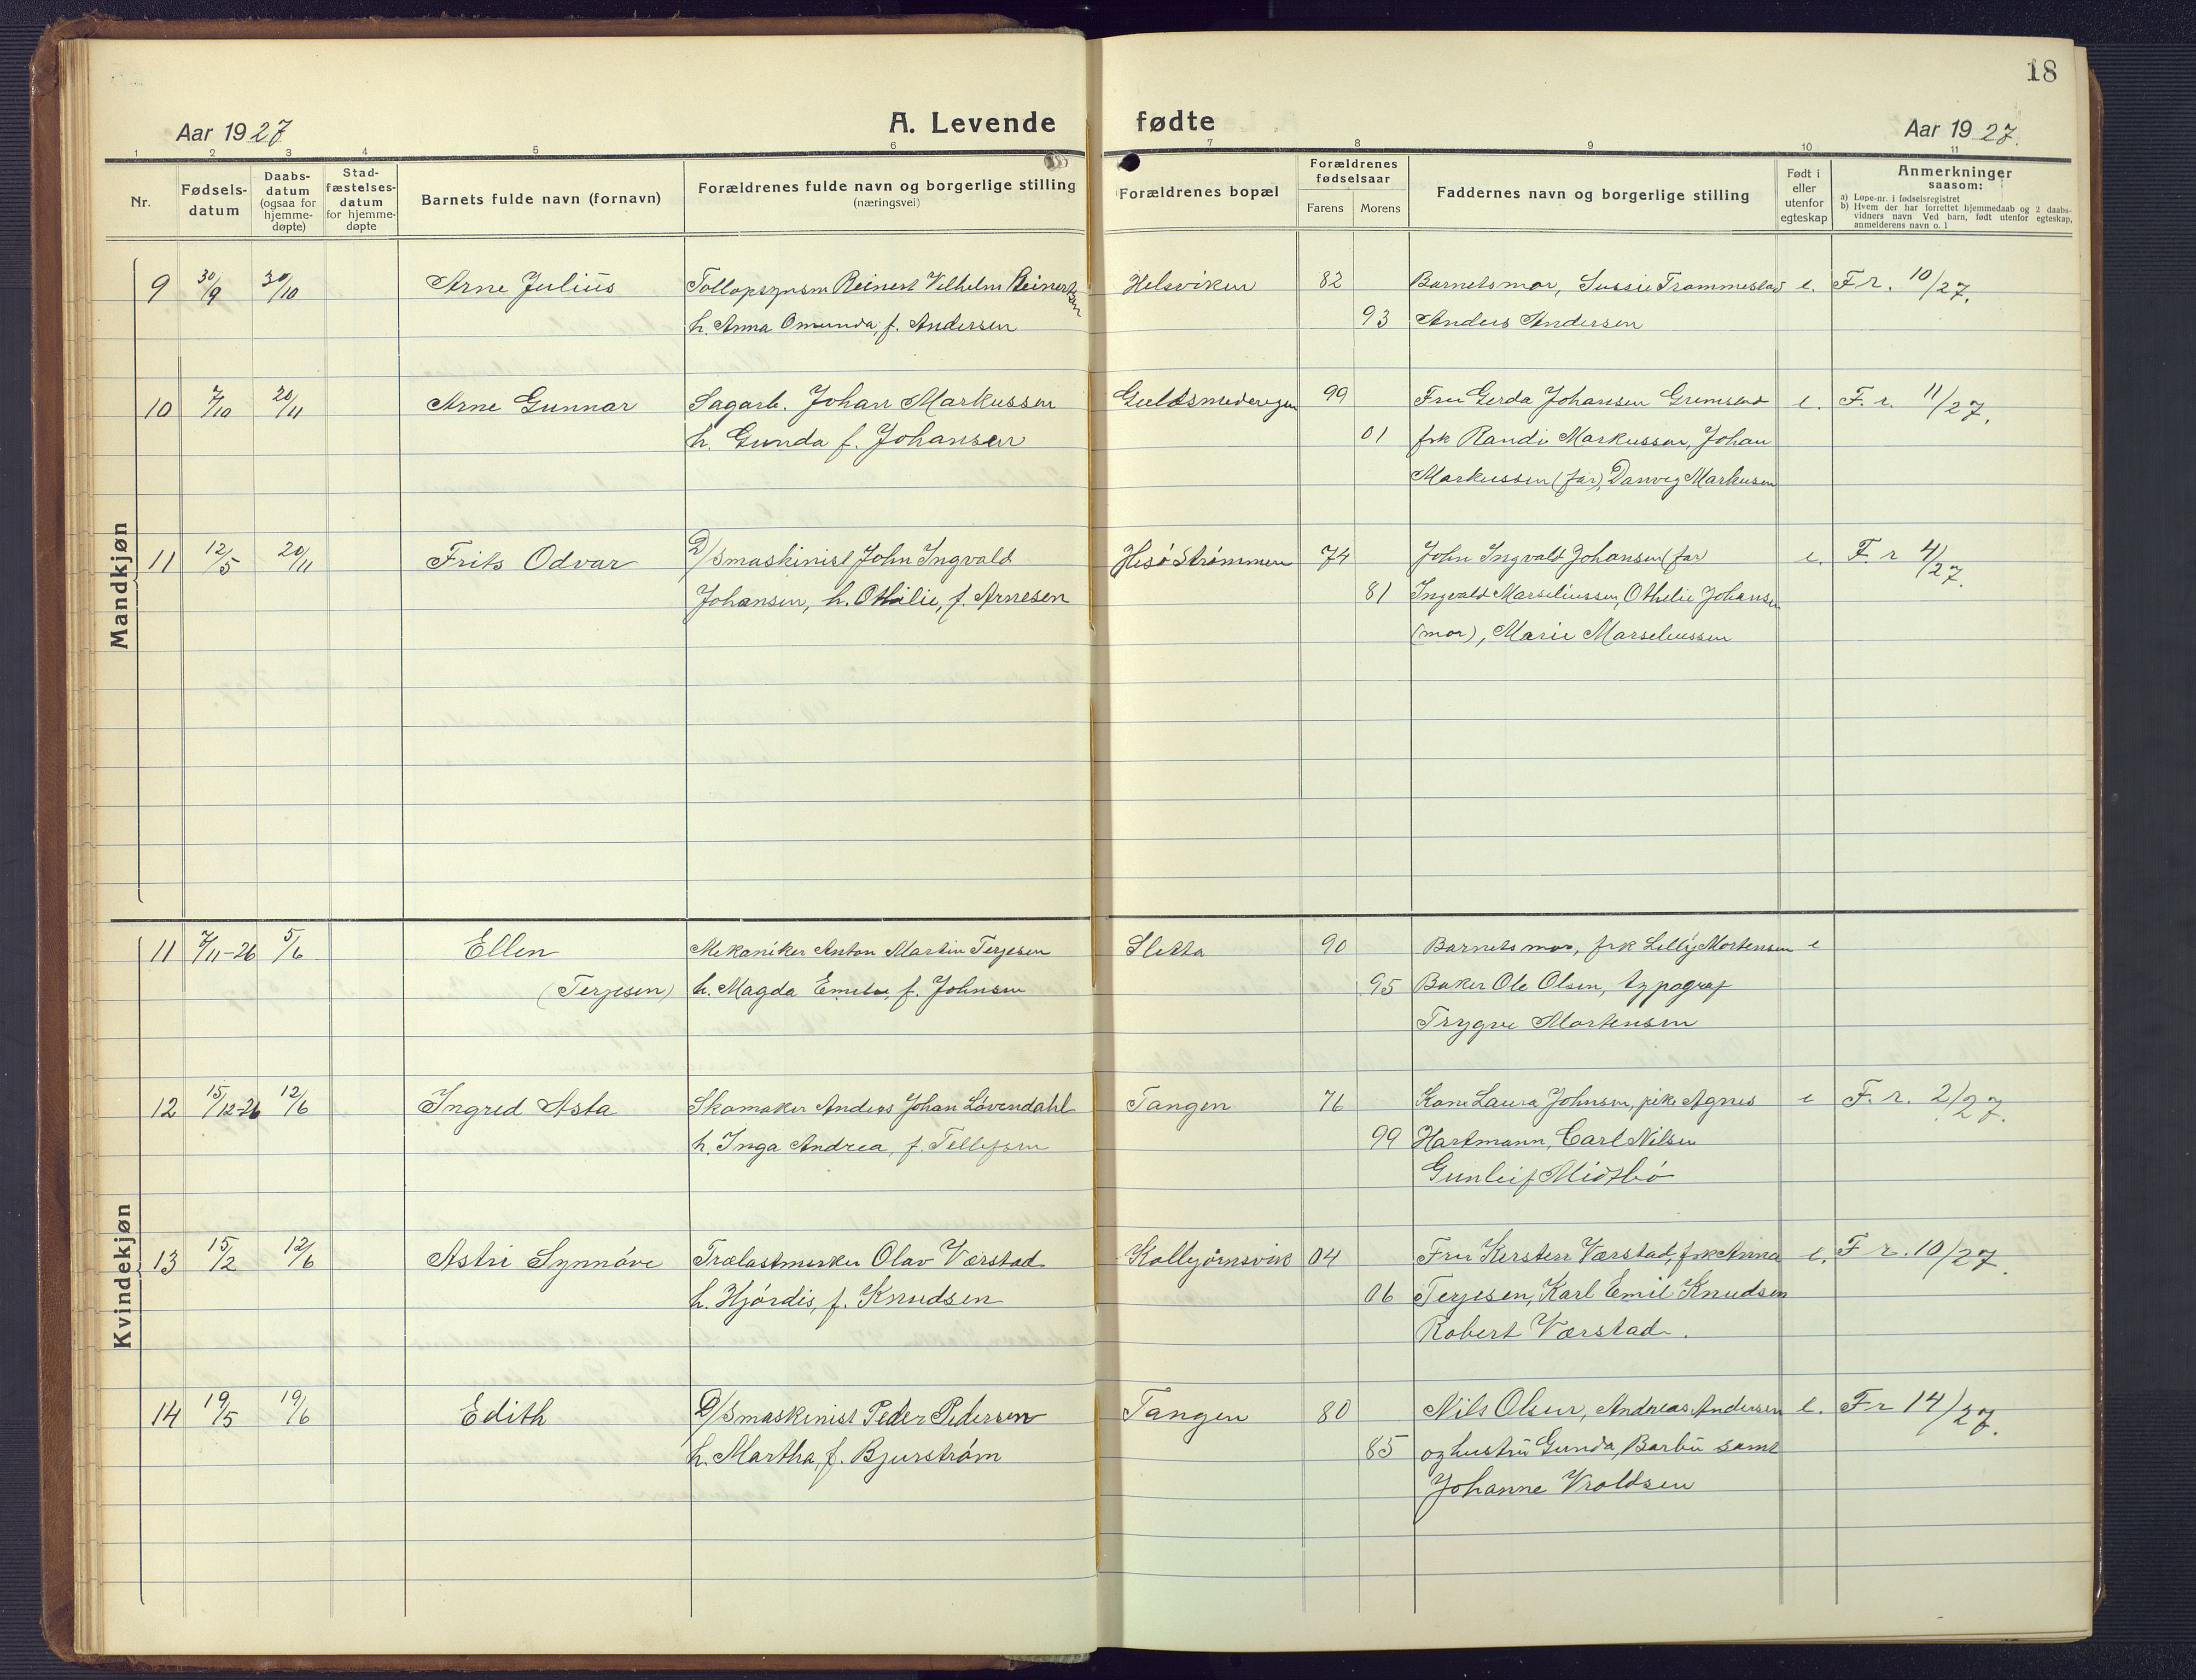 18
Aar 1927
A. Levende fødte
Aar 1927.
1 2 3 4 5 6 7 8 9 10 11
Nr.
Fødsels-
datum
Daabs-
datum
(ogsaa for
hjemme-
døpte)
Stad-
fæstelses-
datum
for hjemme-
døpte
Barnets fulde navn (fornavn)
Forældrenes fulde navn og borgerlige stilling
(næringsvei)
Forældrenes bopæl
Forældrenes
fødselsaar
Farens Morens
Faddernes navn og borgerlige stilling
Født i
eller
utenfor
egteskap
Anmerkninger
saasom:
a) Løpe-nr. i fødselsregistret
b) Hvem der har forrettet hjemmedaab og 2 daabs-
vidners navn Ved barn, født utenfor egteskap,
anmelderens navn o. l
Mandkjøn
9 30/9 30/10 Arne Julius Tollopsynsm Reinert Vilhelm Reinertsen Helsviken 82 Barnets mor, Sussie Trommestad e. F r. 10/27.
h. Anna Omunda, f. Andersen 93 Anders Andersen
10 7/10 20/11 Arne Gunnar Sagarb. Johan Markussen Guldsmedengen 99 Fru Gerda Johansen Grimstad e. F. r. 11/27.
h. Gunda f. Johansen 01 frk Randi Markussen, Johan
Markussen (far), Danveg Markusen
11 12/5 20/11 Frits Odvar D/Smaskinist John Ingvald Hisø Strømmen 74 John Ingvald Johansen (far) e. F. r 4/27.
Johansen, h. Othilie, f. Arnesen 81 Ingvald Marseliussen, Othelie Johansen
(mor), Marie Marseliussen
Kvindekjøn
11 7/11-26 5/6 Ellen Mekaniker Anton Martin Terjesen Sletta 90 Barnets mor, frk Lilly Mortensen e
(Terjesen) h. Magda Emelie, f. Johnsen 95 Baker Ole Olsen, typograf
Trygve Mortensen
12 15/12-26 12/6 Ingrid Asta Skomaker Anders Johan Lövendahl Tangen 76 Kone Laura Johnsen, pike Agnes e F. r. 2/27.
h. Inga Andrea, f. Tellefsen 99 Hartmann, Carl Nilsen
Gunleif Midtbö
13 15/2 12/6 Astri Synnöve Trælastmerker Olav Værstad Kolbjörnsvik 04 Fru Kersten Værstad, frk Anna e. F r. 10/27.
h. Hjördis, f. Knudsen 06 Terjesen, Karl Emil Knudsen
Robert Værstad.
14 19/5 19/6 Edith D/Smaskinist Peder Pedersen Tangen 80 Nils Olsen, Andreas Andersen e. F r 14/27.
h. Martha, f. Bjurström 85 og hustru Gunda, Barbu samt
Johanne Vroldsen